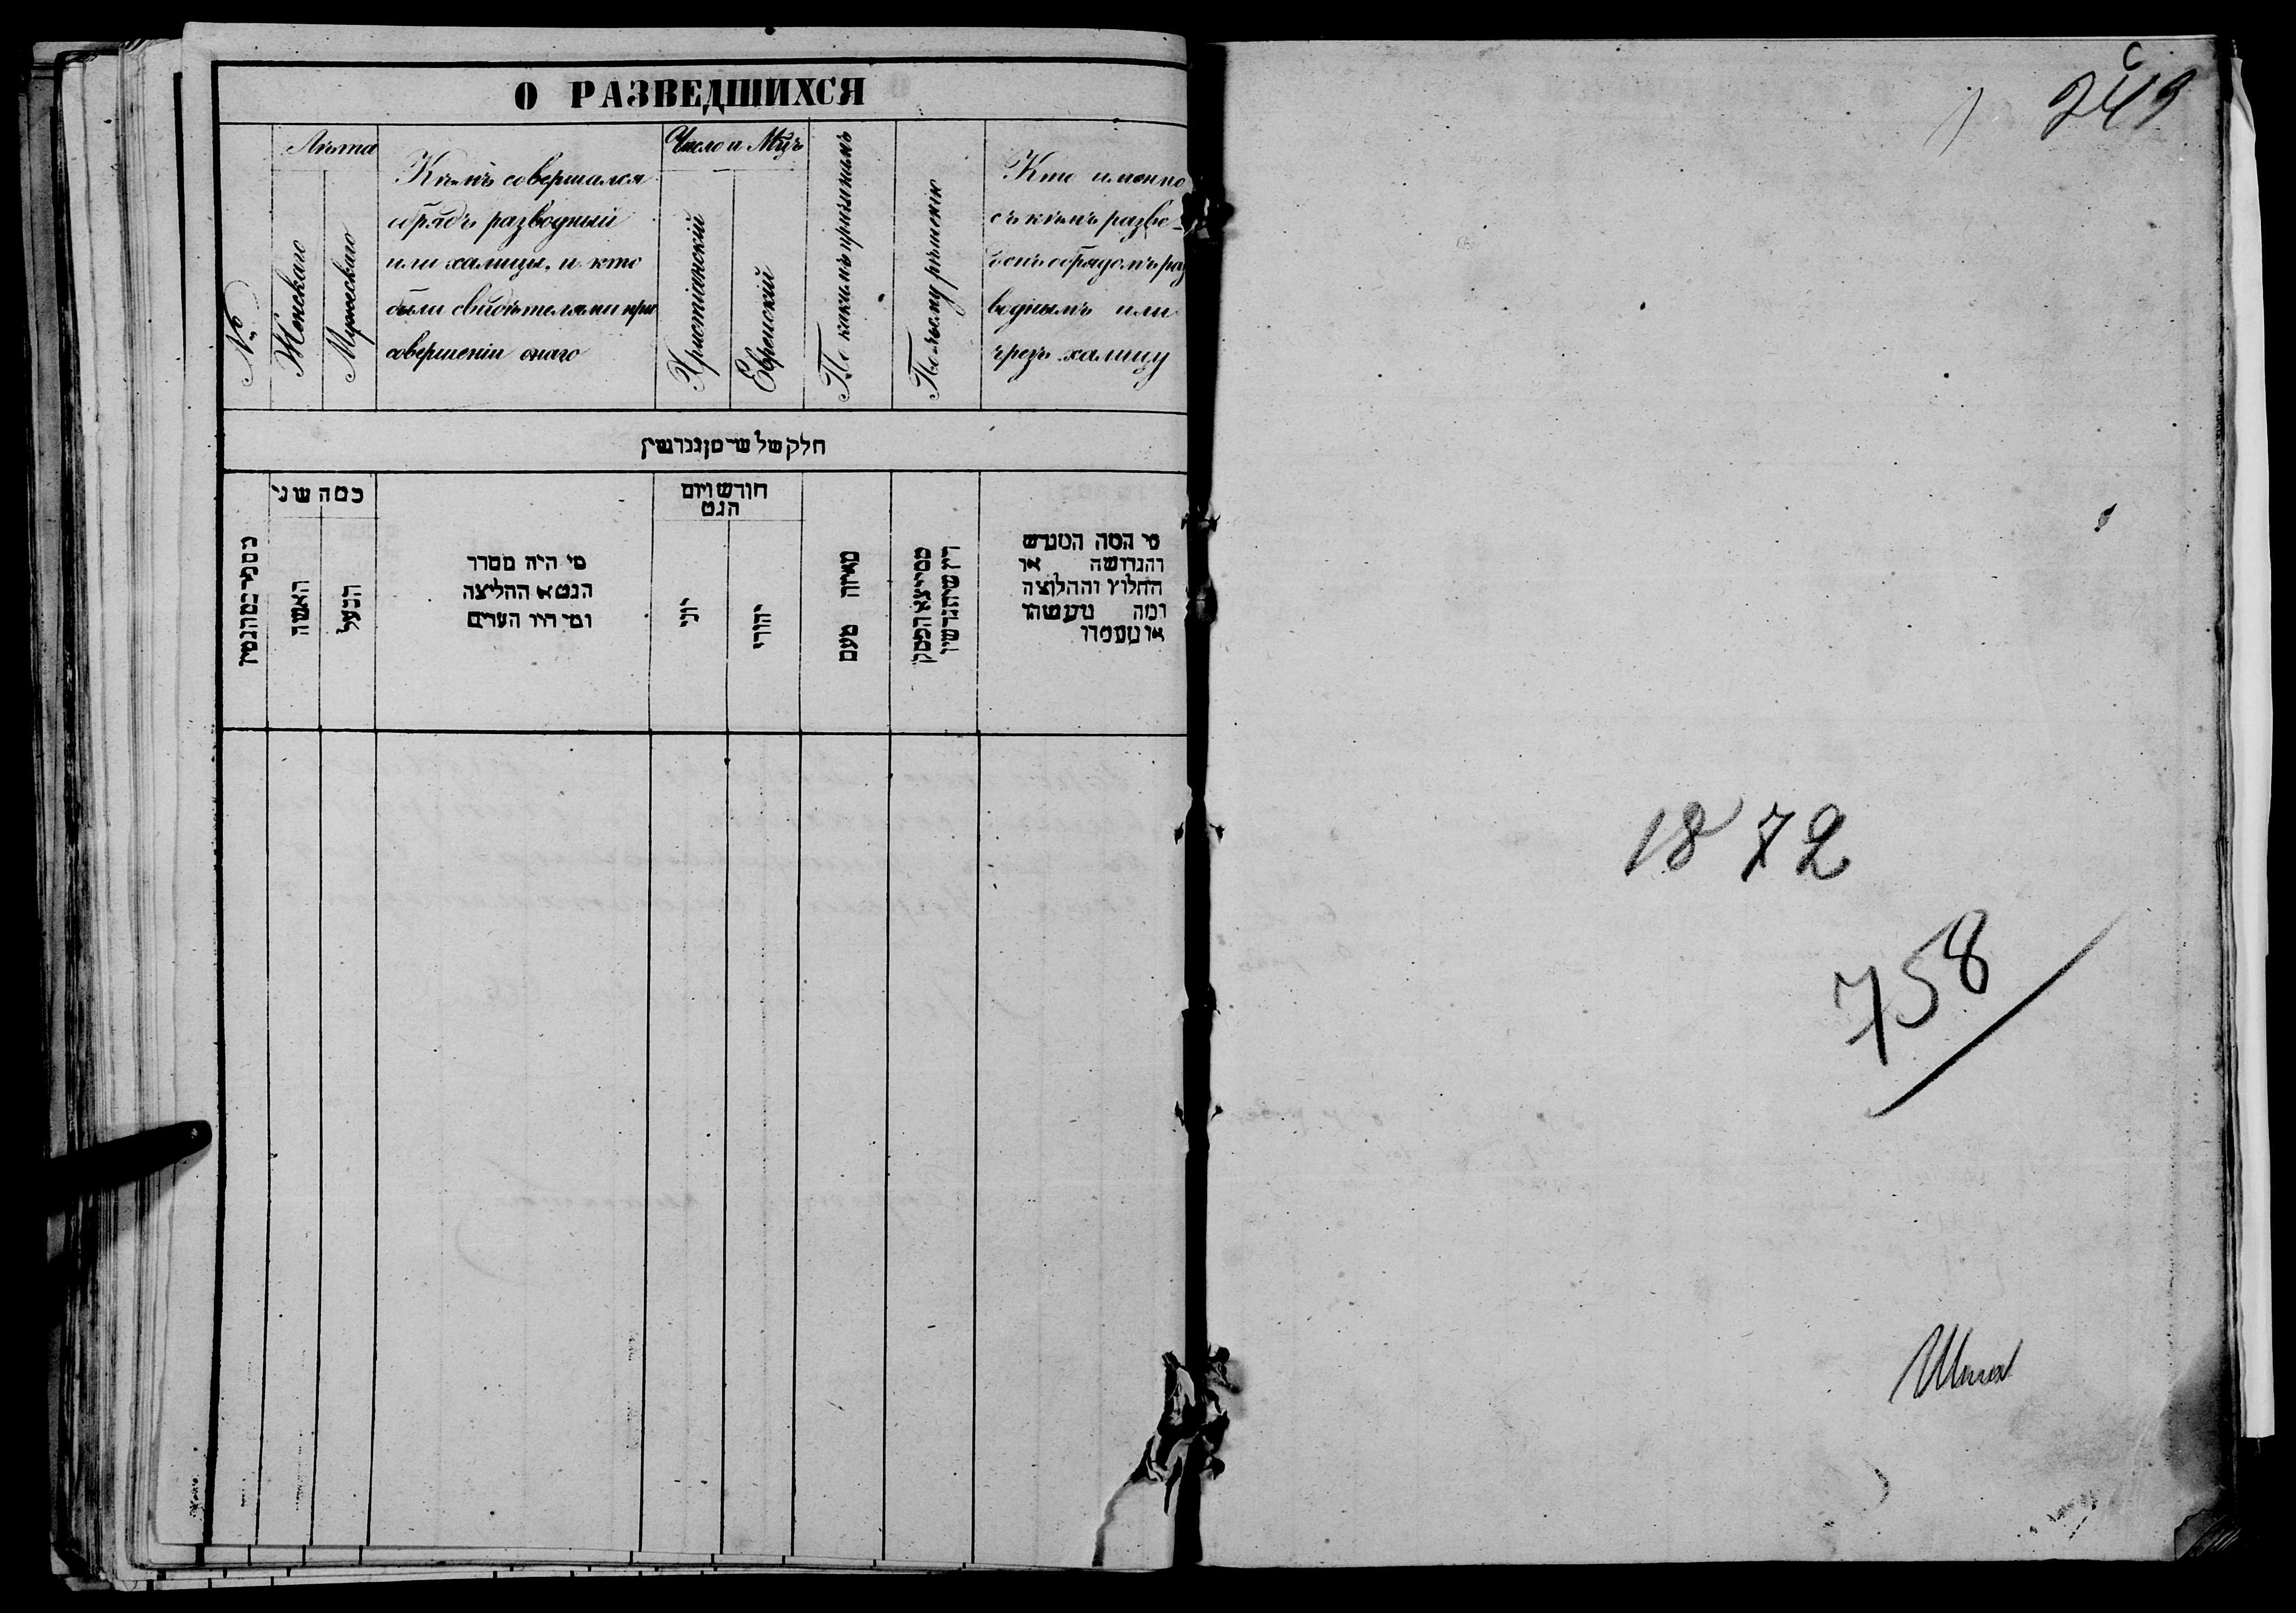 О РАЗВЕДШИХСЯ
№
Лѣта
Женскаго
Мужескаго
Кѣмъ совершался
обрядъ разводный
или халицы, и кто
были свидѣтелями при
совершеніи онаго
Число и Мцъ
Христіанскій
Еврейскій
По какимъ причинамъ
По чьему рѣшенію
Кто именно
съ кѣмъ разве-
денъ обрядомъ раз
воднымъ или
чрезъ халицу
חלק של
כמה שני
האשה
הבעל
מי היה מסדר
הגט או החליצה
ומי היו העדים
חודש ויום
הגט
יוני
יהודי
מאיזה טעם
מי המה המגרש
והגרושה או
החלוץ והחלוצה
ומה נעשה
או נעמדו
249
1872
758